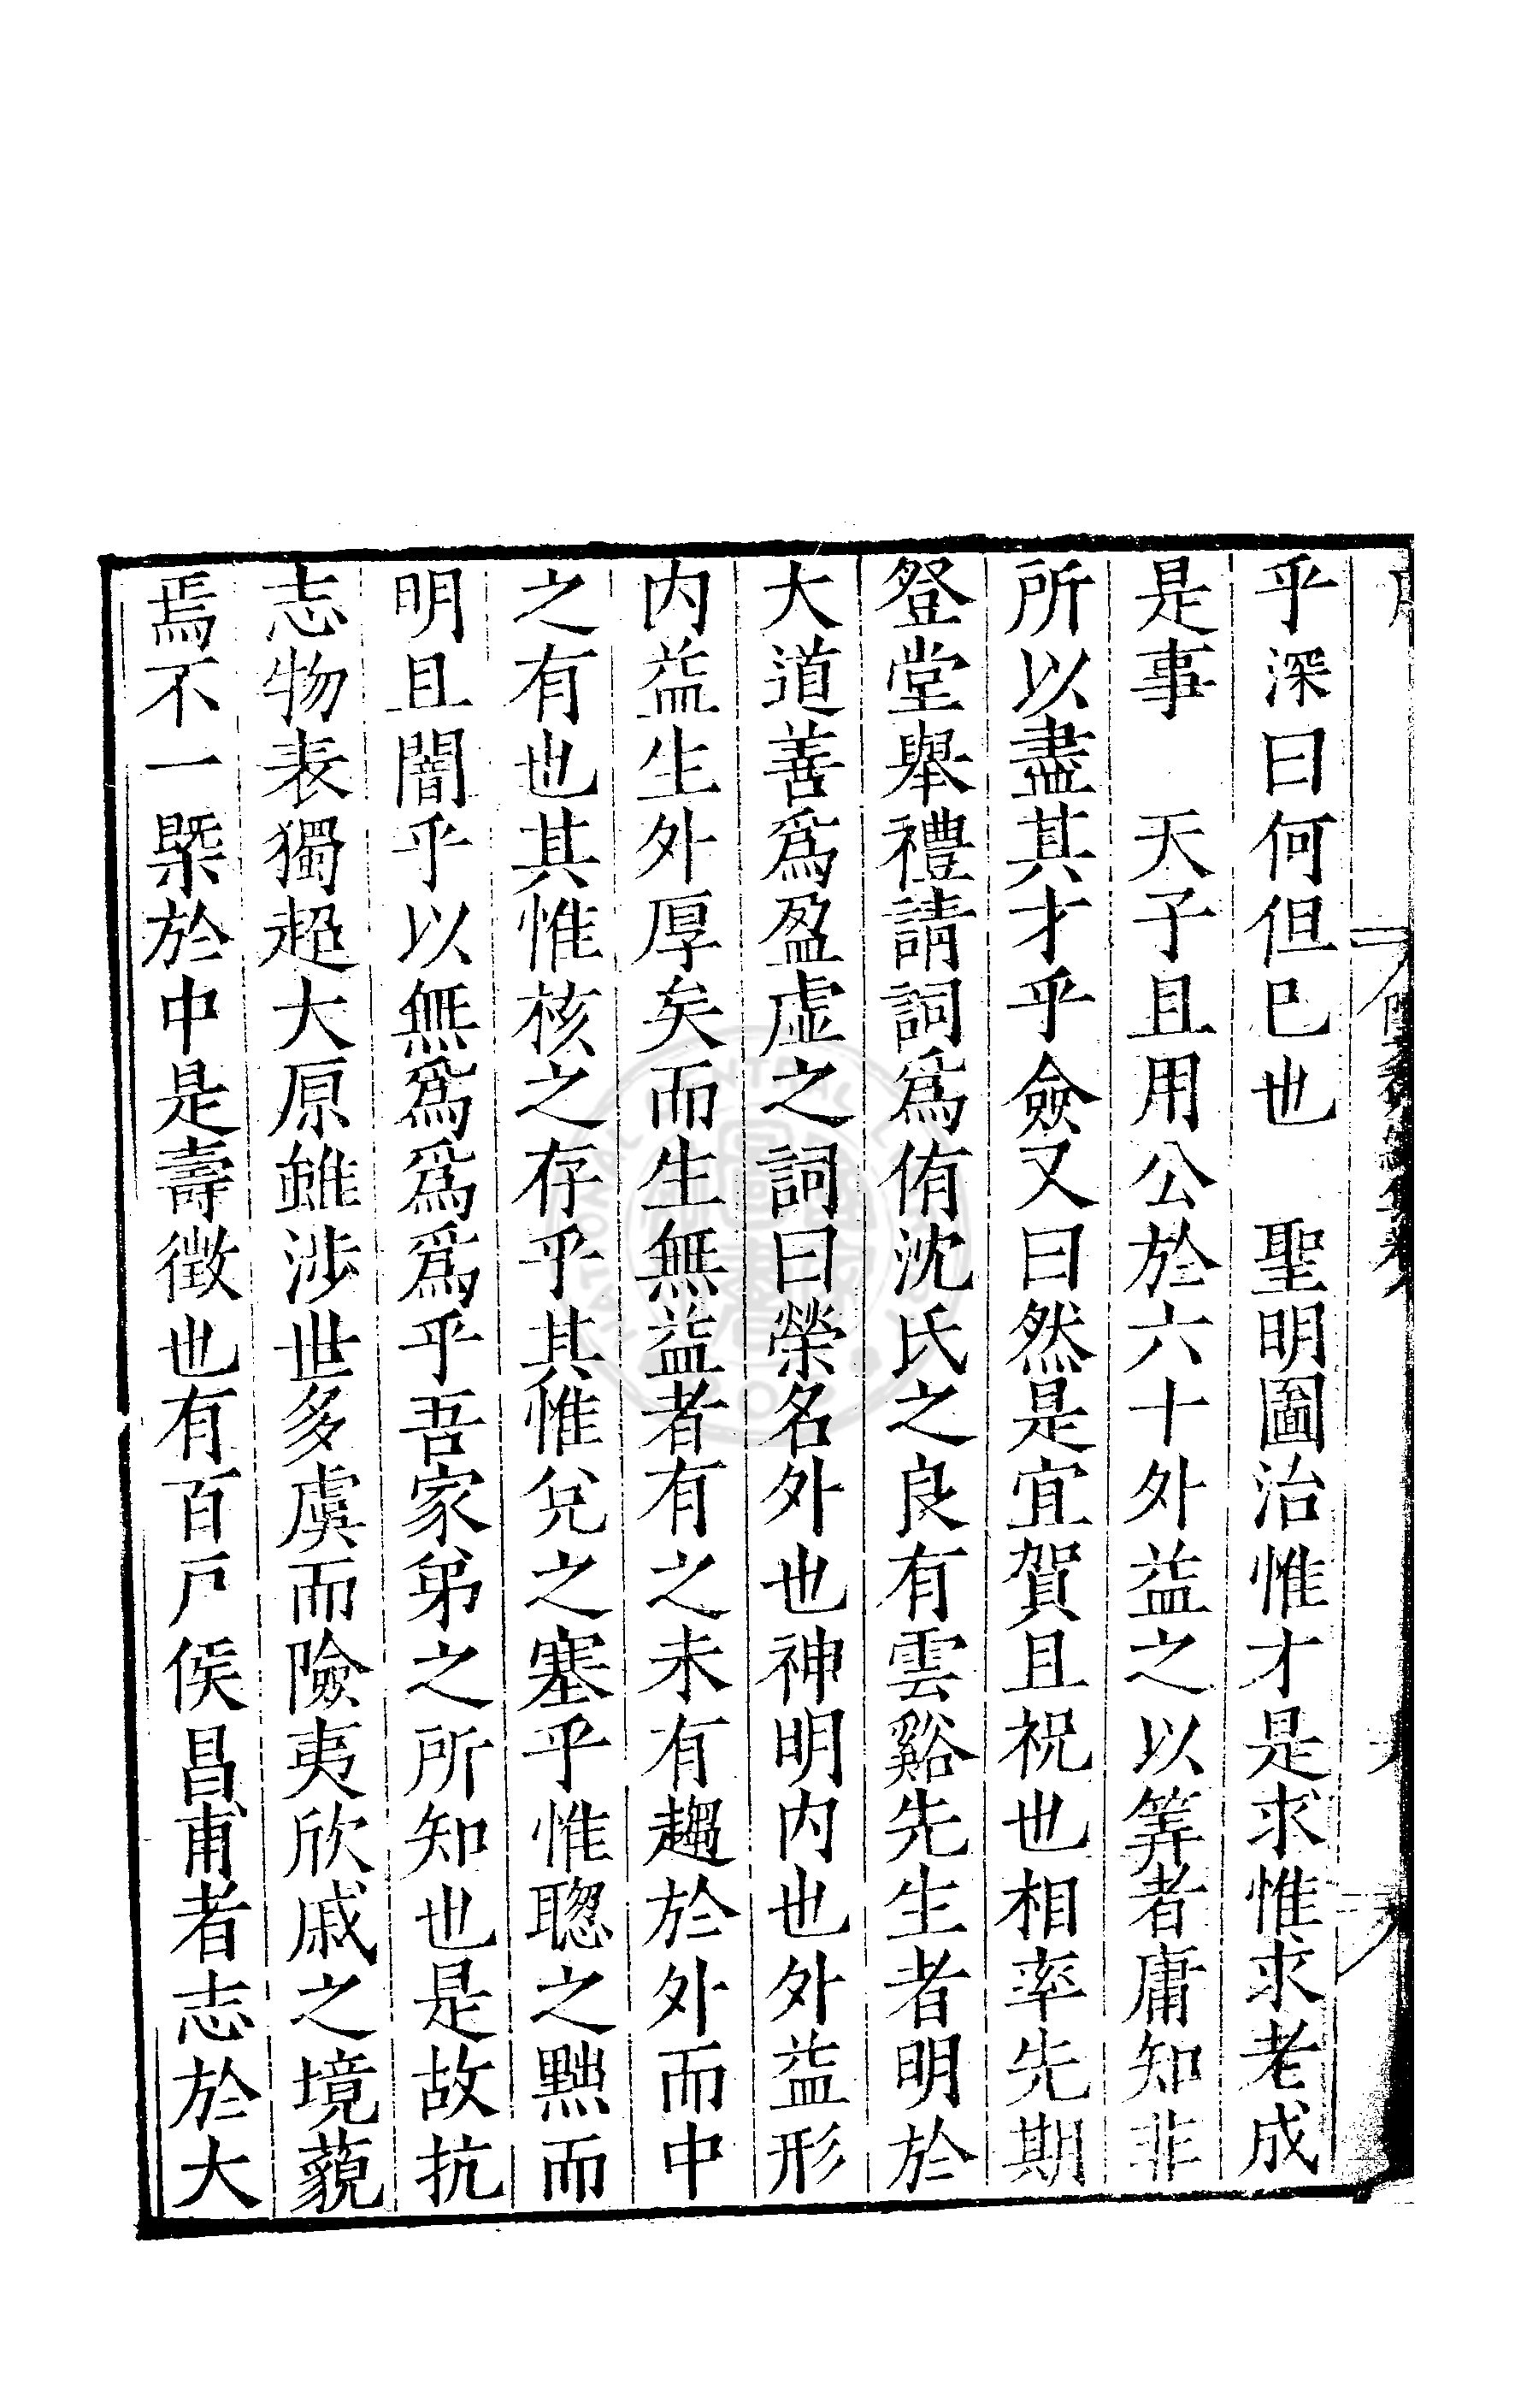 乎深曰何但已也　聖明圖治惟才是求惟求老成
是事　天子且用公於六十外益之以筭者庸知非
所以盡其才乎僉又曰然是宜賀且祝也相率先期
登堂舉禮請詞爲侑沈氏之良有雲谿先生者明於
大道善爲盈虛之詞曰榮名外也神明内也外益形
内益生外厚矣而生無益者有之未有趨於外而中
之有也其惟核之存乎其惟兊之塞乎惟聰之黜而
明且闇乎以無爲爲爲乎吾家弟之所知也是故抗
志物表獨超大原雖涉世多虞而險夷欣戚之境藐
焉不一槩於中是壽徵也有百戶侯昌甫者志於大